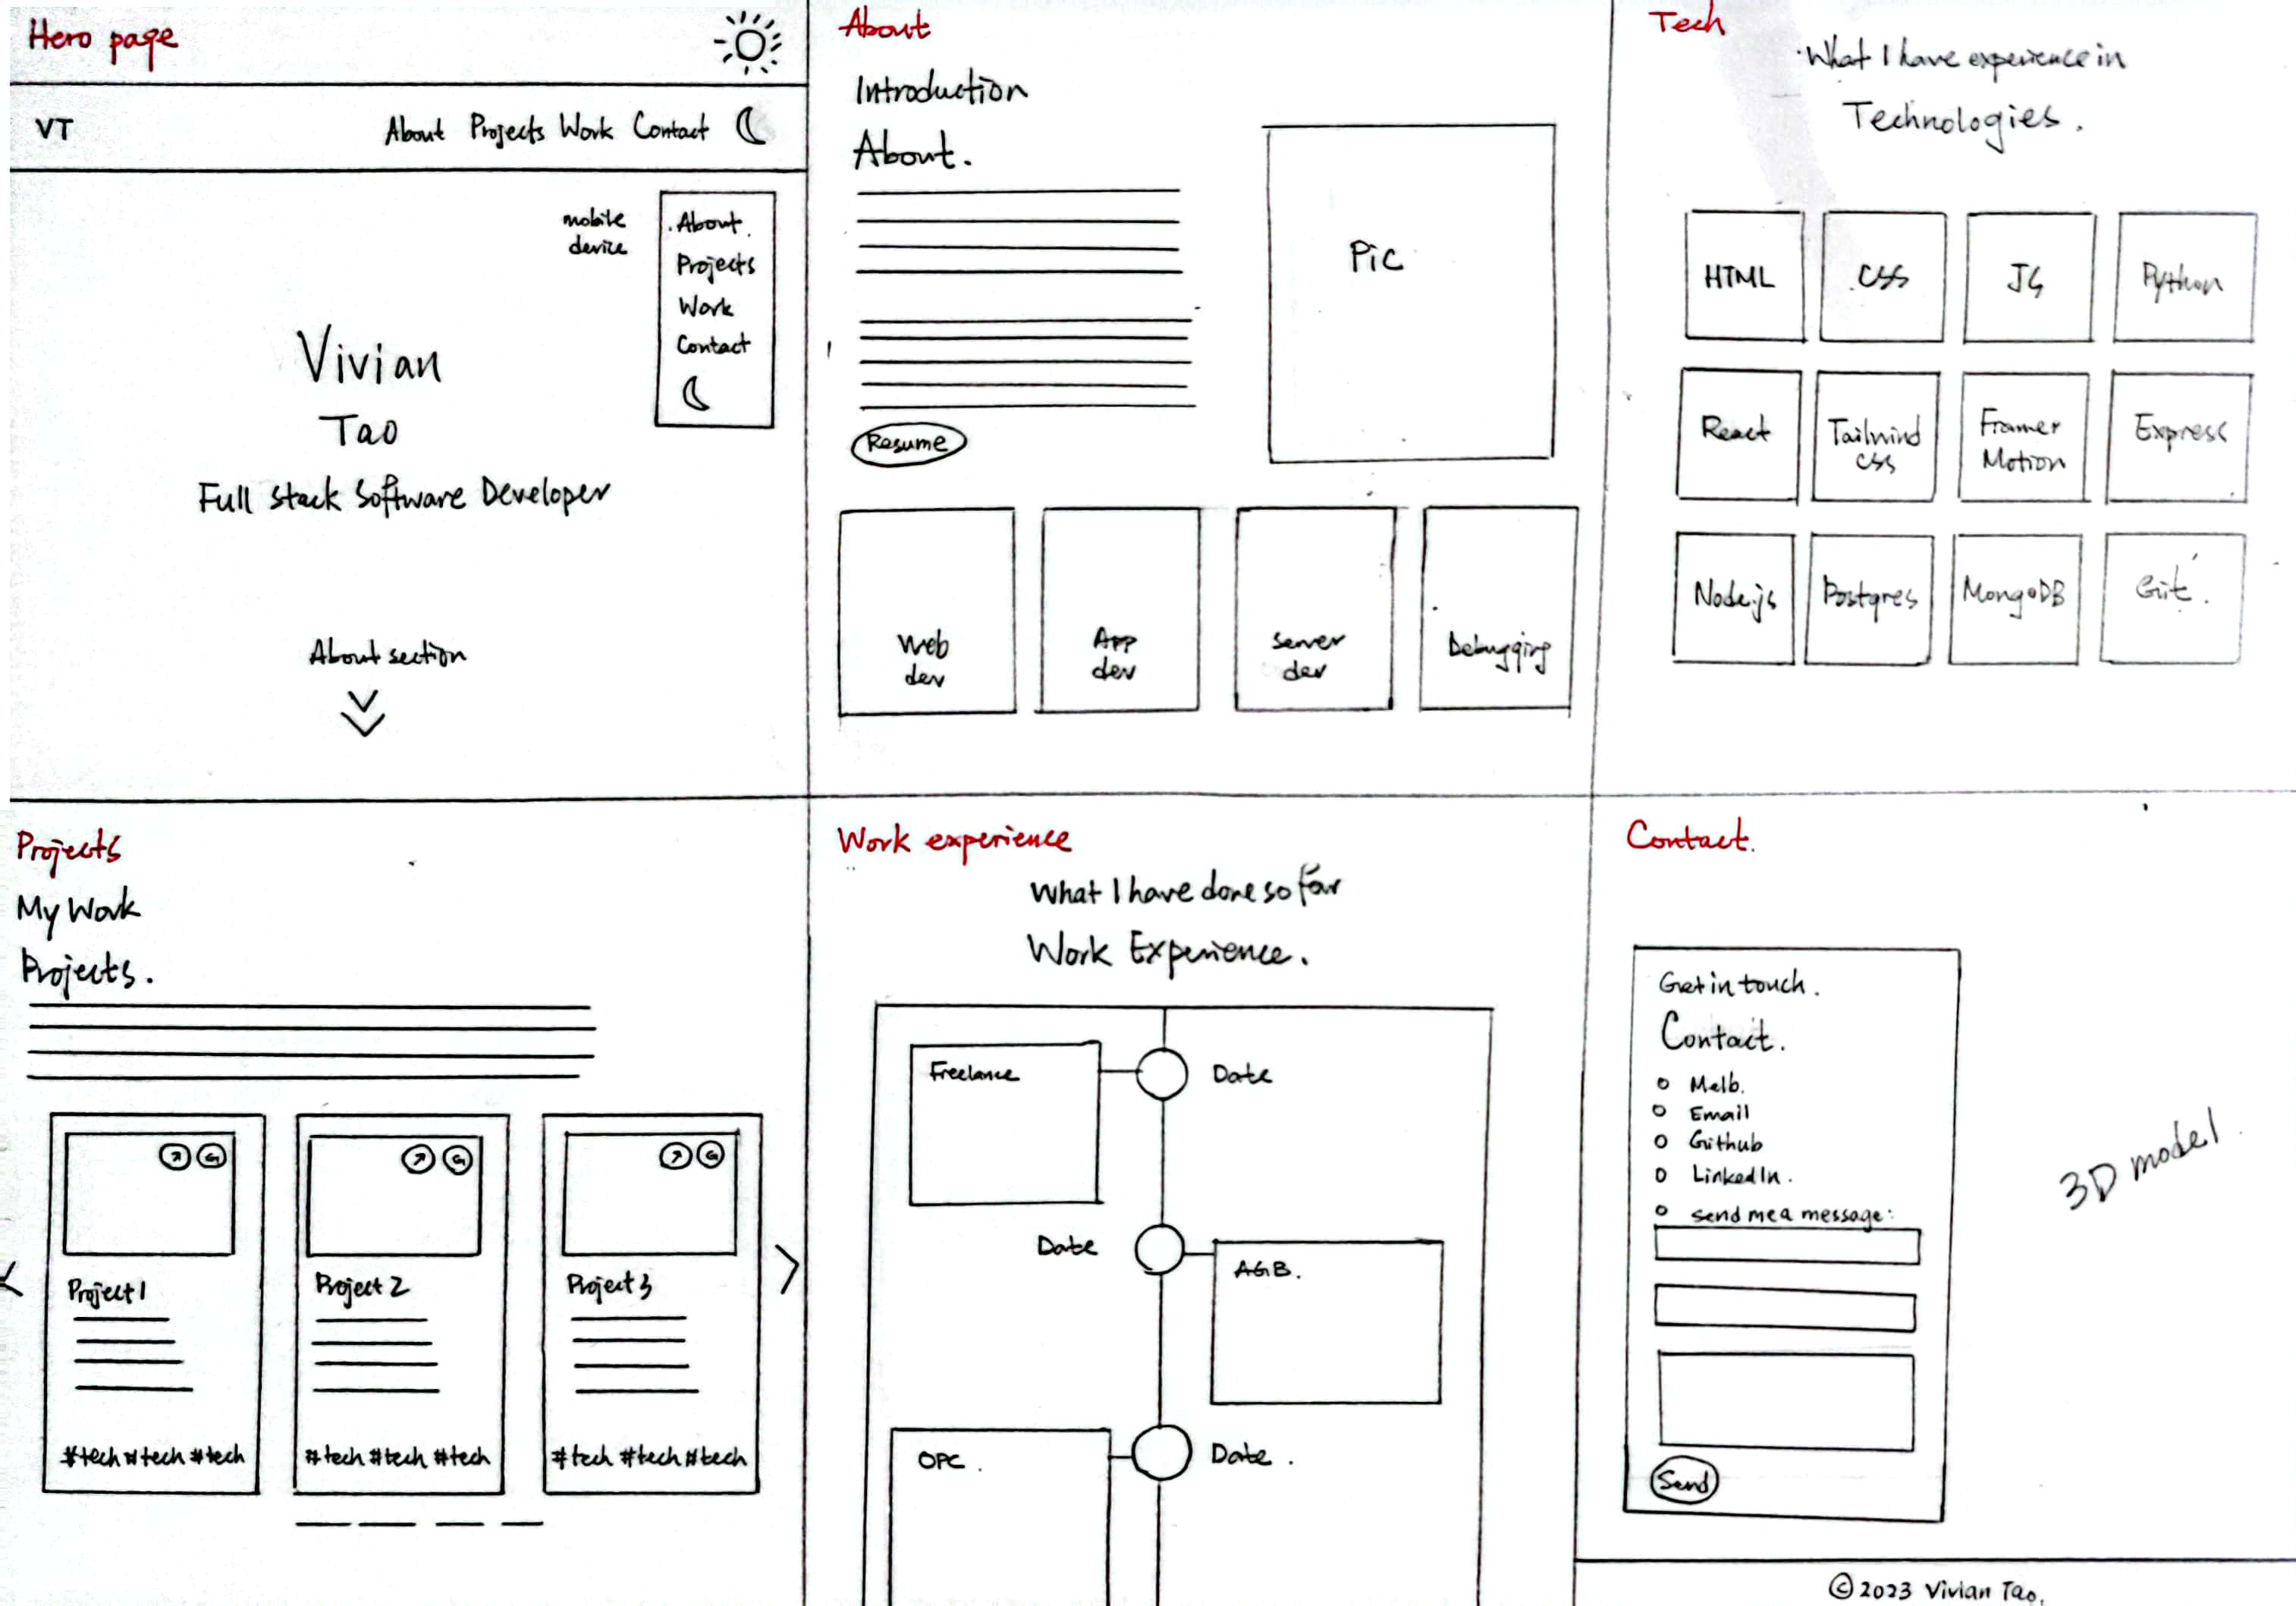 Hero page
VT
About Projects Work Contact
mobile
device
About.
Projects
Work
Contact
Vivian
Tao
Full stack Software Developer
About section
About
Introduction
About.
Pic
Resume
Web
dev
App
dev
server
dev
Debugging
Tech
What I have experience in
Technologies.
HTML
CSS
JS
Python
React
Tailwind
CSS
Framer
Motion
Express
Node.js
Postgres
MongoDB
Git.
Projects
My Work
Projects.
G
G
G
Project 1
Project 2
Project 3
#tech #tech #tech
#tech #tech #tech
#tech #tech #tech
Work experience
What I have done so far
Work Experience.
Freelance
Date
Date
AGB.
OPC.
Date.
Contact.
Get in touch.
Contact.
Melb.
Email
Github
LinkedIn.
send me a message:
Send
3D model.
© 2023 Vivian Tao.